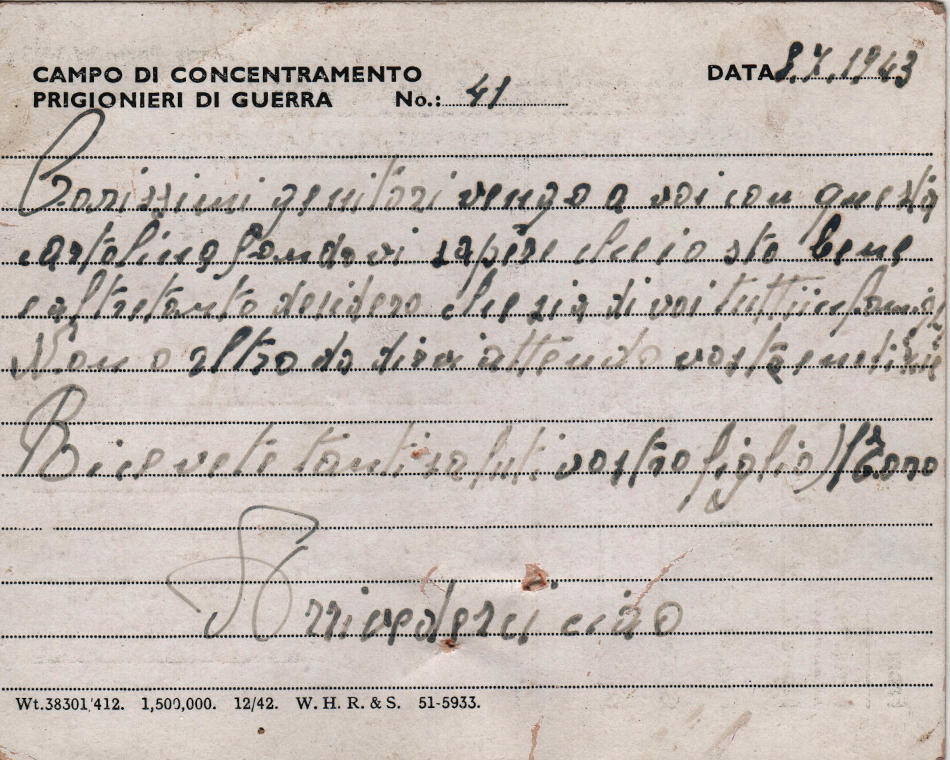 CAMPO DI CONCENTRAMENTO
PRIGIONIERI DI GUERRA No.: 41
DATA 8.7.1943
Carissimi genitori vengo a voi con questa
cartolina facendovi sapere che io sto bene
e altretanto desidero che sia di voi tutti in famig
Non o altro da dirvi attendo vostre notizie
Ricevete tanti saluti vostro figlio
Arrivederci ciao
Wt.38301/412. 1,500,000. 12/42. W. H. R. & S. 51-5933.